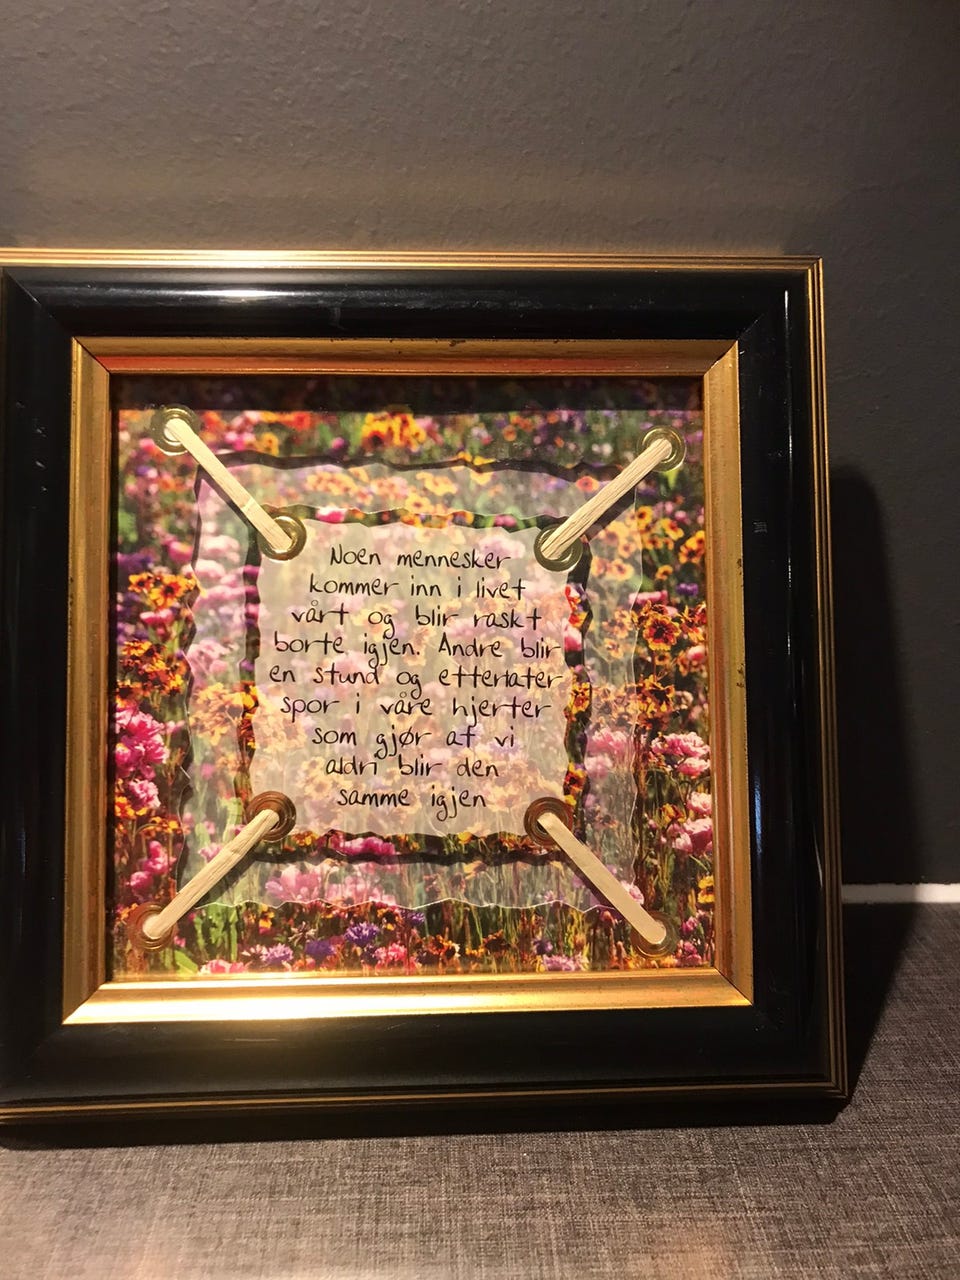 Noen mennesker
kommer inn i livet
vårt og blir raskt
borte igjen. Andre blir
en stund og etterlater
spor i våre hjerter
som gjør at vi
aldri blir den
samme igjen